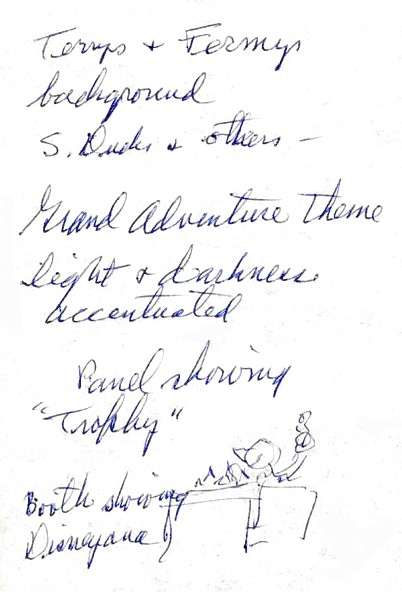 Terrys + Fermys
background
S. Ducks + others –
Grand Adventure Theme
light + darkness
accentuated
Panel showing
"Trophy"
Booth showing
Disneyana